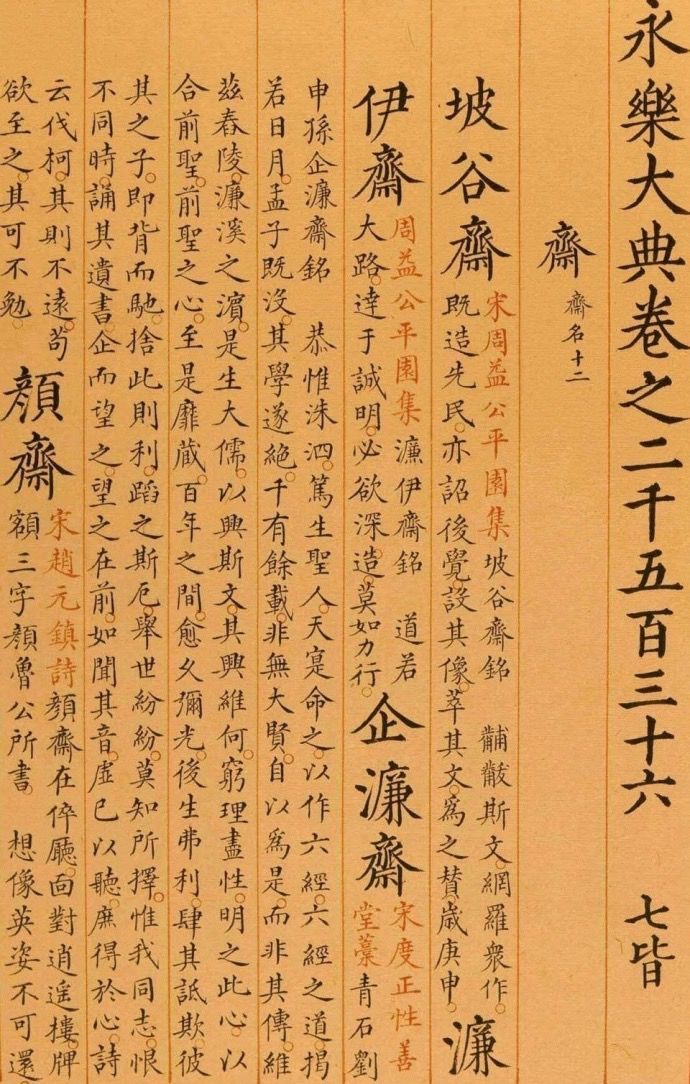 永樂大典卷之二千五百三十六 七皆
齋 齋名十二
坡谷齋
宋周益公平園集坡谷齋銘 黼黻斯文。網羅衆作。
既造先民。亦詔後覺。設其像。萃其文。爲之賛。歲庚申。
濂
伊齋
周益公平園集 濂伊齋銘 道若
大路。達于誠明。必欲深造。莫如力行。
企濂齋
宋度正性善
堂藁青石劉
申孫企濂齋銘 恭惟洙泗。篤生聖人。天寔命之。以作六經。六經之道。揭
若日月。孟子既没。其學遂絶。千有餘載。非無大賢。自以爲是。而非其傳。維
兹舂陵。濂溪之濵。是生大儒。以興斯文。其興維何。窮理盡性。明之此心。以
合前聖。前聖之心。至是靡蔵。百年之間。愈久彌光。後生弗利。肆其詆欺。彼
其之子。即背而馳。捨此則利。蹈之斯厄。舉世紛紛。莫知所擇。惟我同志。恨
不同時。誦其遺書。企而望之。望之在前。如聞其音。虚已以聽。庶得於心。詩
云伐柯。其則不遠。苟
欲至之。其可不勉。
顔齋
宋趙元鎮詩顔齋在倅廳。面對逍遥樓。牌
額三字顔魯公所書。 想像英姿不可還。